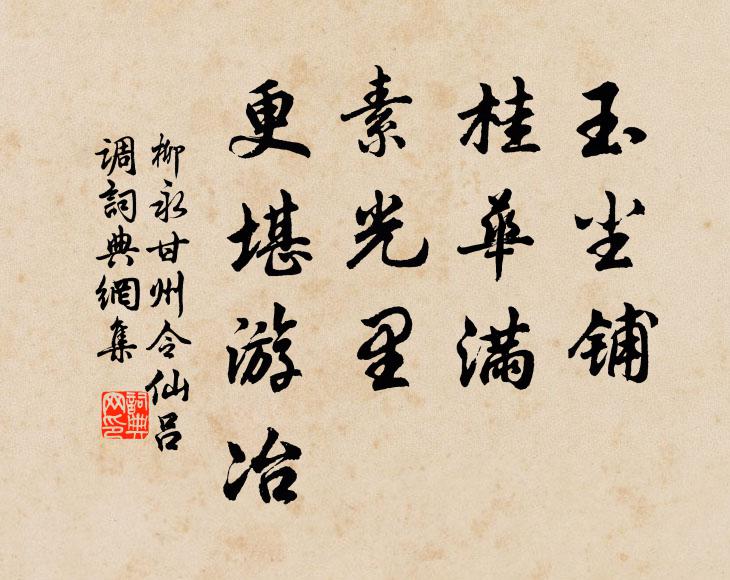 玉尘铺
桂华满
素光里
更堪游冶
柳永甘州令仙吕
调词典网集
詞典
网印